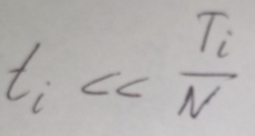 t_i << \frac{T_i}{N}